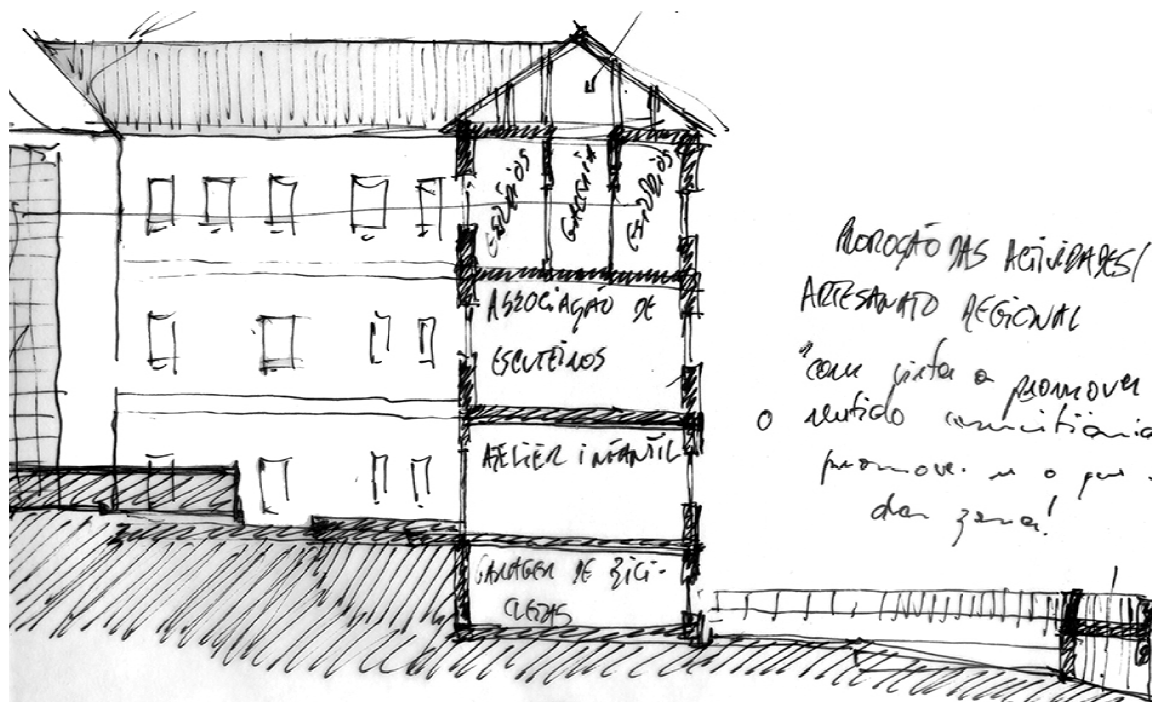 ESCRITÓRIOS
GALERIA
ESCRITÓRIOS
ASSOCIAÇÃO DE
ESCUTEIROS
ATELIER INFANTIL
GARAGEM DE BICI-
CLETAS
PROMOÇÃO DAS ACTIVIDADES/
ARTESANATO REGIONAL
"com vista a promover
o sentido
promove o que
da zona!